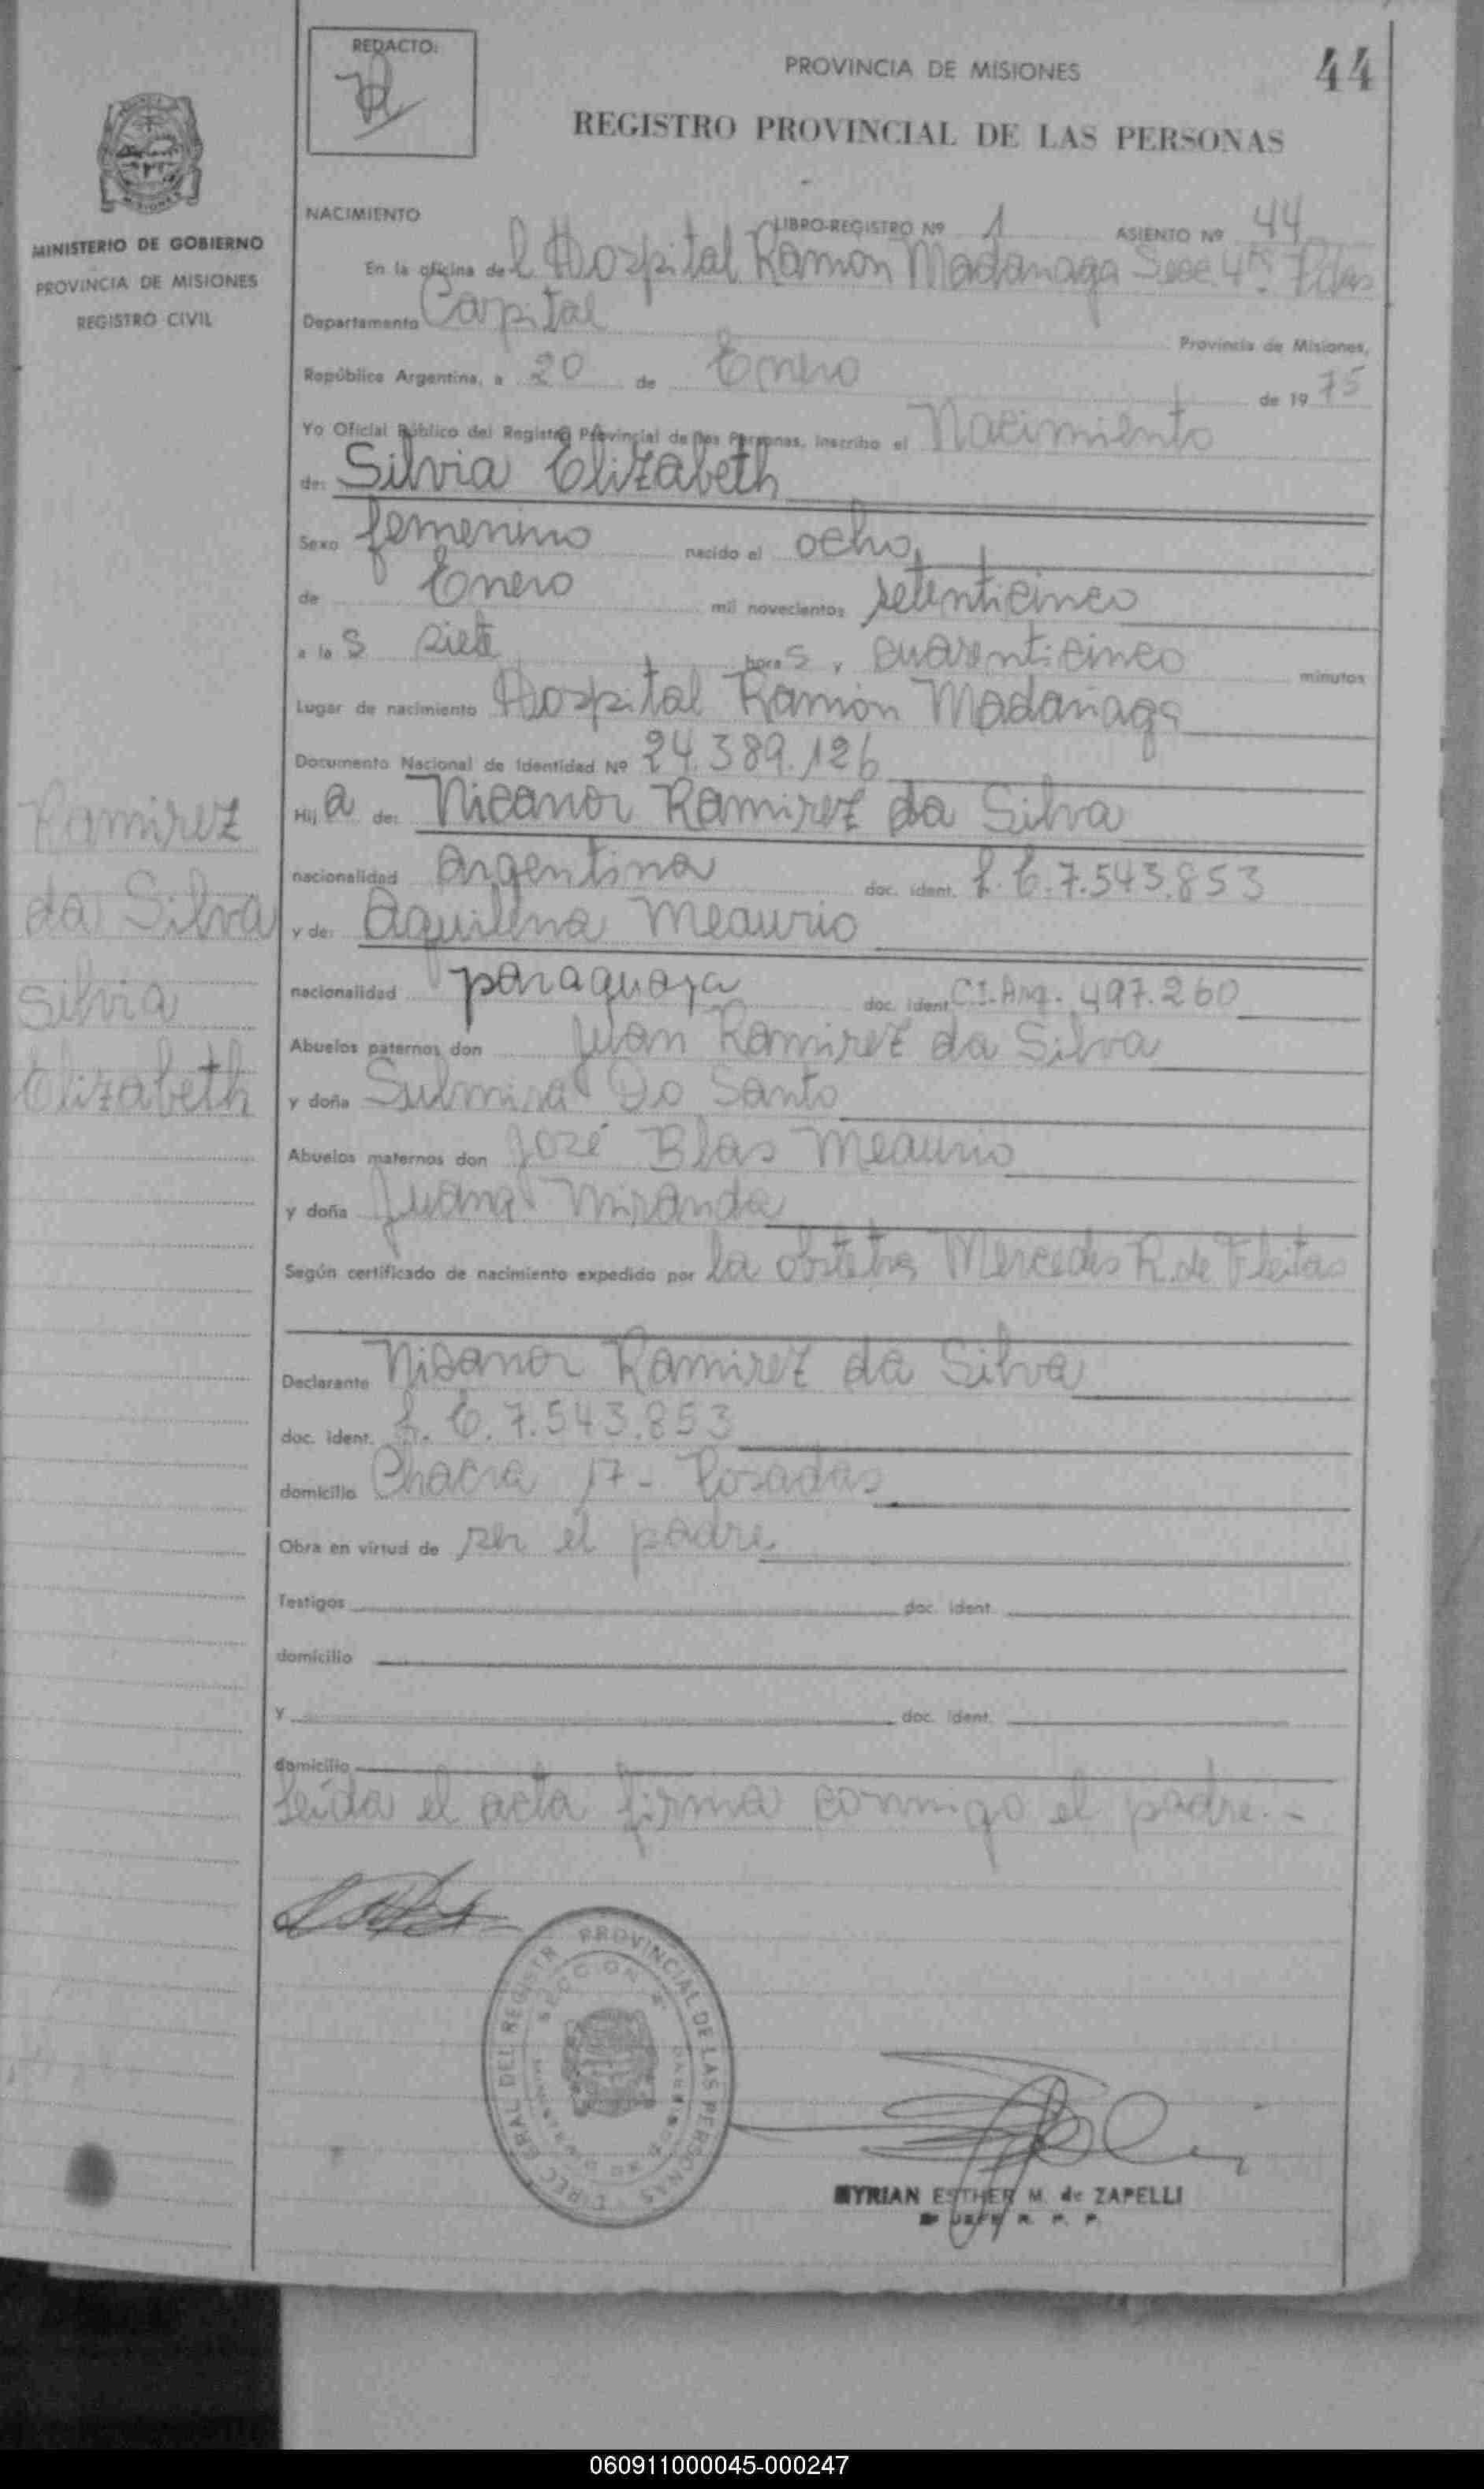 REDACTO:
PROVINCIA DE MISIONES
44
REGISTRO PROVINCIAL DE LAS PERSONAS
MINISTERIO DE GOBIERNO
PROVINCIA DE MISIONES
REGISTRO CIVIL
NACIMIENTO
LIBRO-REGISTRO Nº 1 ASIENTO Nº 44
En la oficina del Hospital Ramón Madariaga Secc. 4ta Pdas
Departamento Capital Provincia de Misiones,
República Argentina, a 20 de Enero de 1975
Yo Oficial Público del Registro Provincial de las Personas, inscribo el Nacimiento
de: Silvia Elizabeth
Sexo femenino nacido el ocho
de Enero mil novecientos setenticinco
a las siete horas, cuarenticinco minutos
Lugar de nacimiento Hospital Ramón Madariaga
Documento Nacional de Identidad Nº 24.389.126
Hija de: Nicanor Ramirez da Silva
nacionalidad Argentina doc. ident. L.E. 7.543.853
y de: Aquilina Meaurio
nacionalidad paraguaya doc. ident C.I. Arg. 497.260
Abuelos paternos don Juan Ramirez da Silva
y doña Sulmira Do Santo
Abuelos maternos don José Blas Meaurio
y doña Juana Miranda
Según certificado de nacimiento expedido por la obstetra Mercedes R. de Fleitas
Declarante Nicanor Ramirez da Silva
doc. ident. L.E. 7.543.853
domicilio Chacra 17 - Posadas
Obra en virtud de ser el padre
Testigos doc. ident.
domicilio
y doc. ident.
domicilio
Leída el acta firma conmigo el padre.-
Ramirez
da Silva
Silvia
Elizabeth
PROVINCIAL DE LAS PERSONAS
SECCION 4ª
MYRIAN ESTHER M. de ZAPELLI
JEFE R. P. P.
060911000045-000247